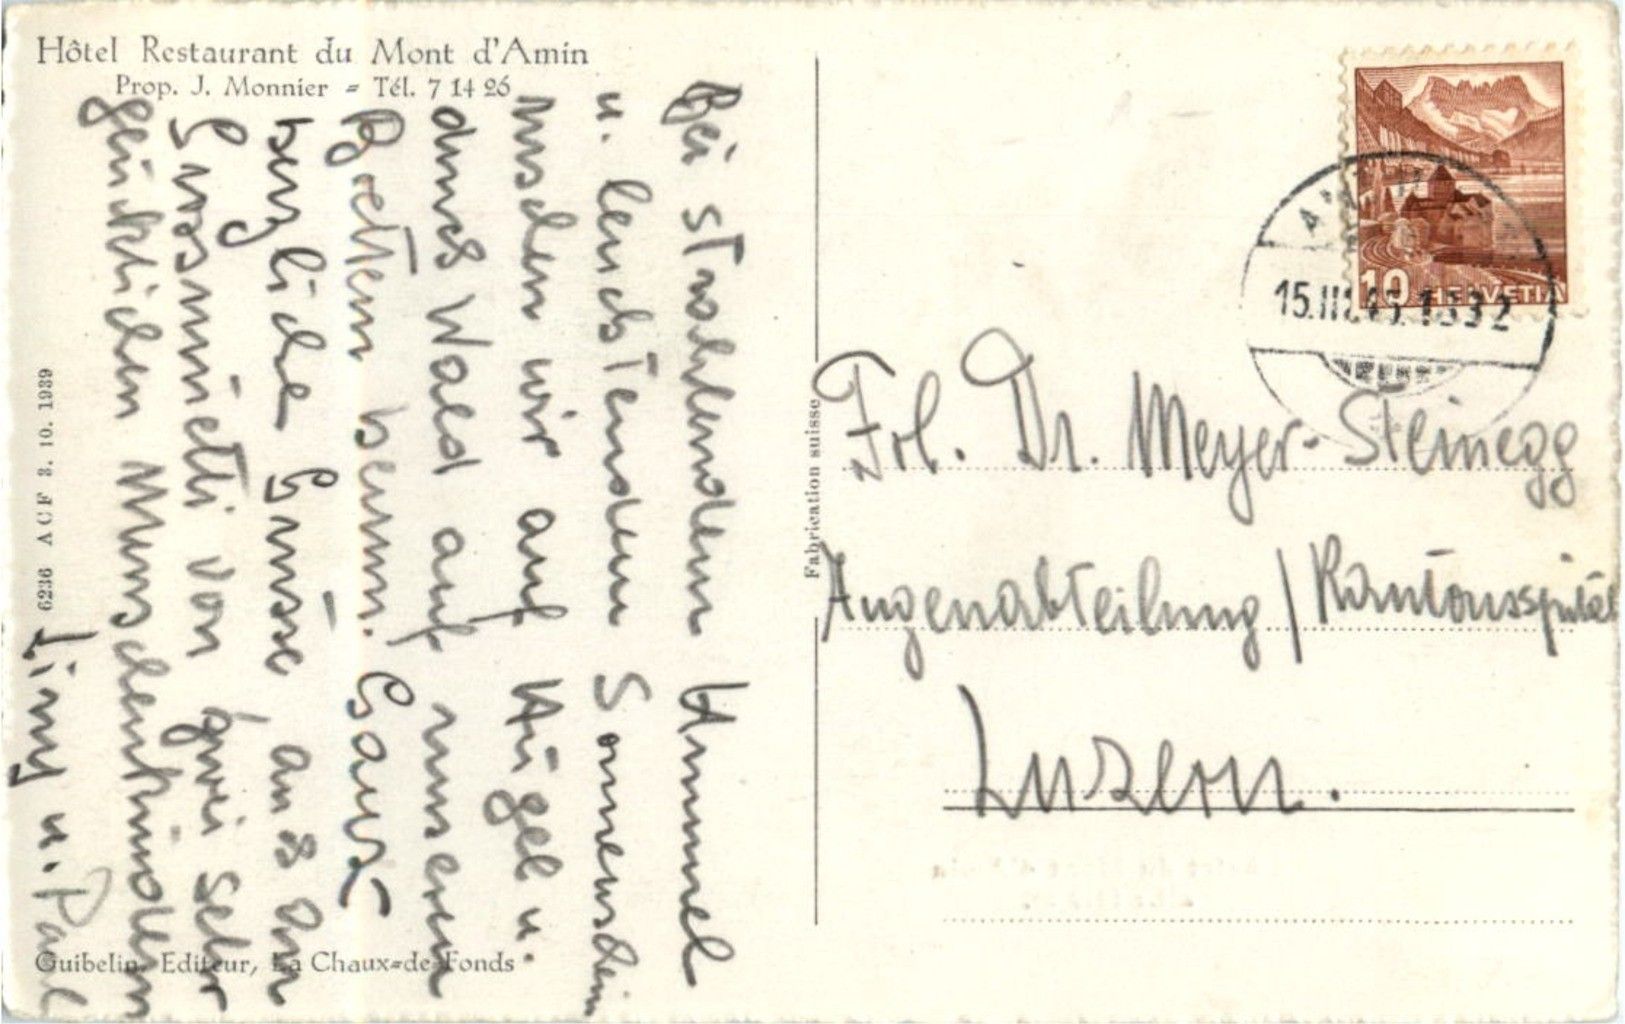 Hôtel Restaurant du Mont d'Amin
Prop. J. Monnier = Tél. 7 14 26
Bei strahlendem Himmel
u. leuchtendem Sonnenschein
wandern wir auf Hügel u.
durchs Wald auf unseren
Brettern herum. Ganz
herzliche Grüsse ans
Grosmüetti von zwei sehr
glücklichen Menschenkindern
Liny u. Paul
6236 ACF 3. 10. 1939
Guibelin, Editeur, La Chaux=de=Fonds
Fabrication suisse
10 HELVETIA
15.III.45.1832
Frl. Dr. Meyer-Steinegg
Augenabteilung / Kantonsspital
Luzern.